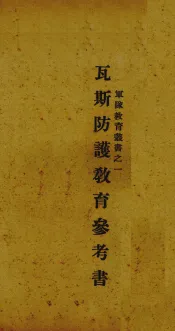 軍隊教育叢書之一
瓦斯防護教育參考書